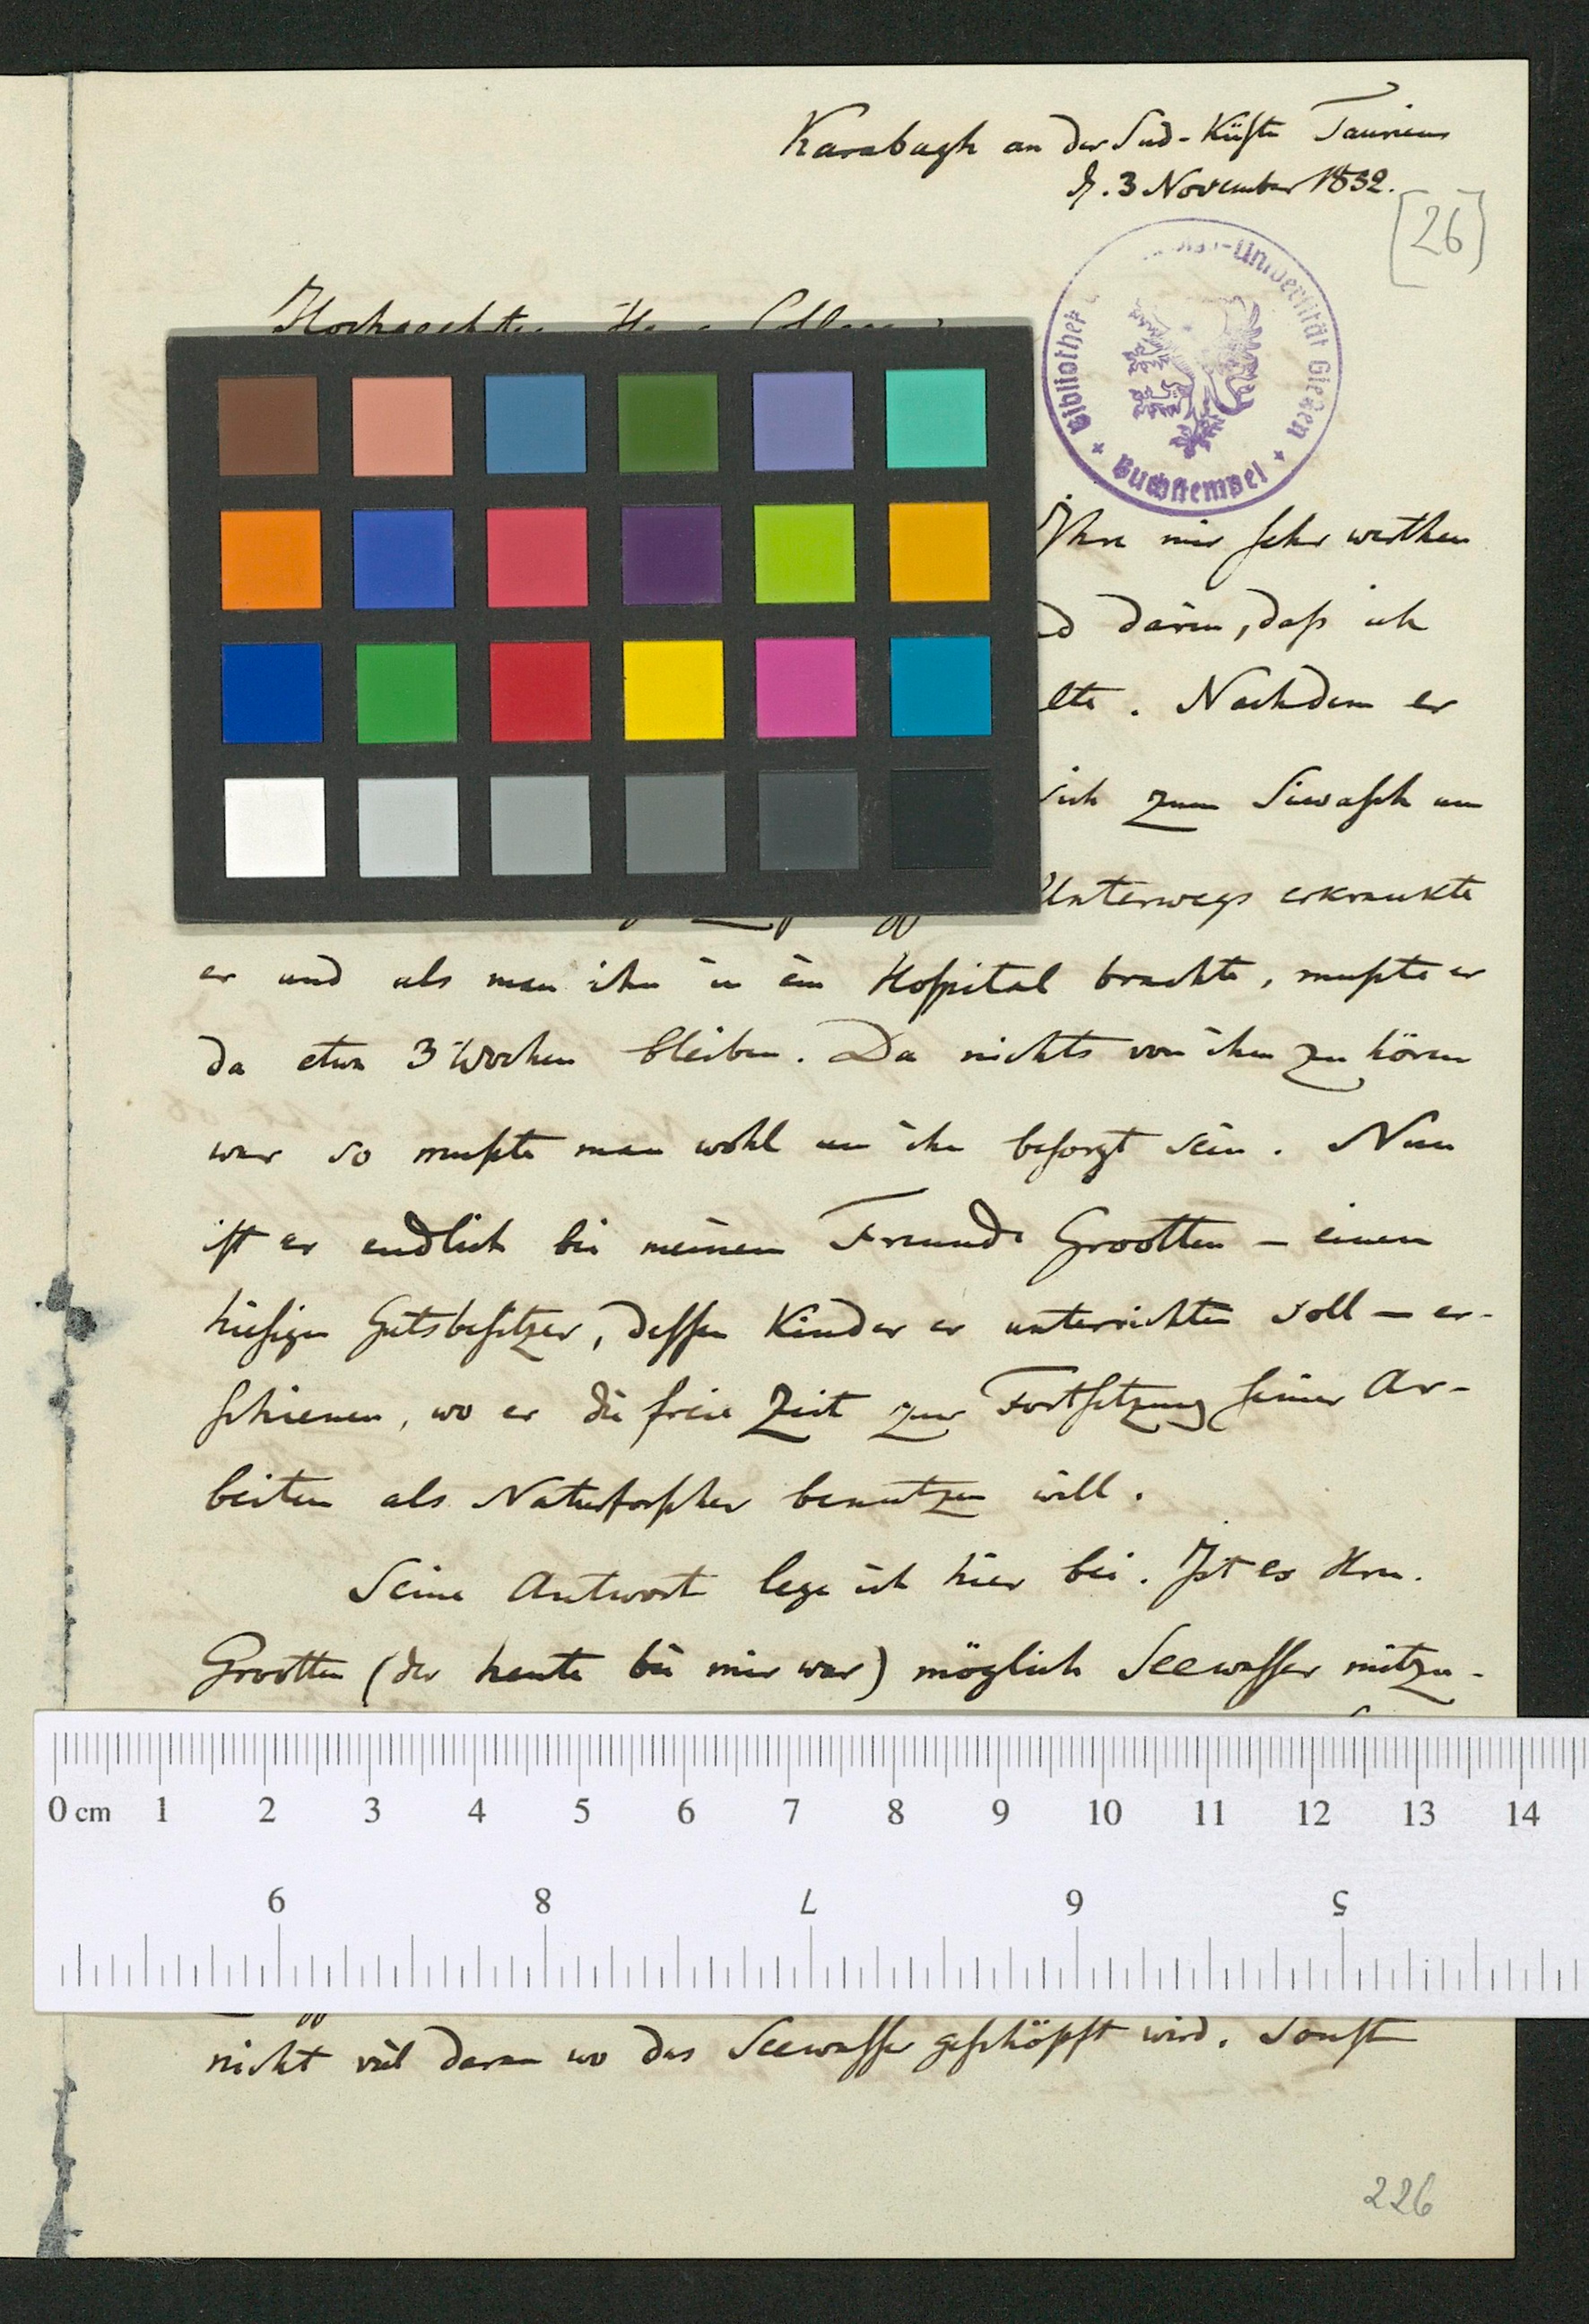 Karabagh an der Süd-Küste Tauriens
d. 3 November 1832.
[26]
Bibliothek Universität Gießen
Buchstempel
Hochgeehrter
Ihre mir sehr werthen
darin, daß ich
lte. Nachdem er
sich zum Siwasch um
Unterwegs erkrankte
er und als man ihn in ein Hospital brachte, mußte er
da etwa 3 Wochen bleiben. Da nichts von ihm zu hören
war so mußte man wohl um ihn besorgt sein. Nun
ist er endlich bei meinem Freunde Grootten – einem
hiesigen Gutsbesitzer, dessen Kinder er unterrichten soll – er-
schienen, wo er die freie Zeit zur Fortsetzung seiner Ar-
beiten als Naturforscher benutzen will.
Seine Antwort lege ich hier bei. Ist es Hrn.
Grootten (der heute bei mir war) möglich Seewasser mitzu-
0 cm 1 2 3 4 5 6 7 8 9 10 11 12 13 14
9 8 7 6 5
nicht viel daran wo das Seewasser geschöpft wird. Sonst
226